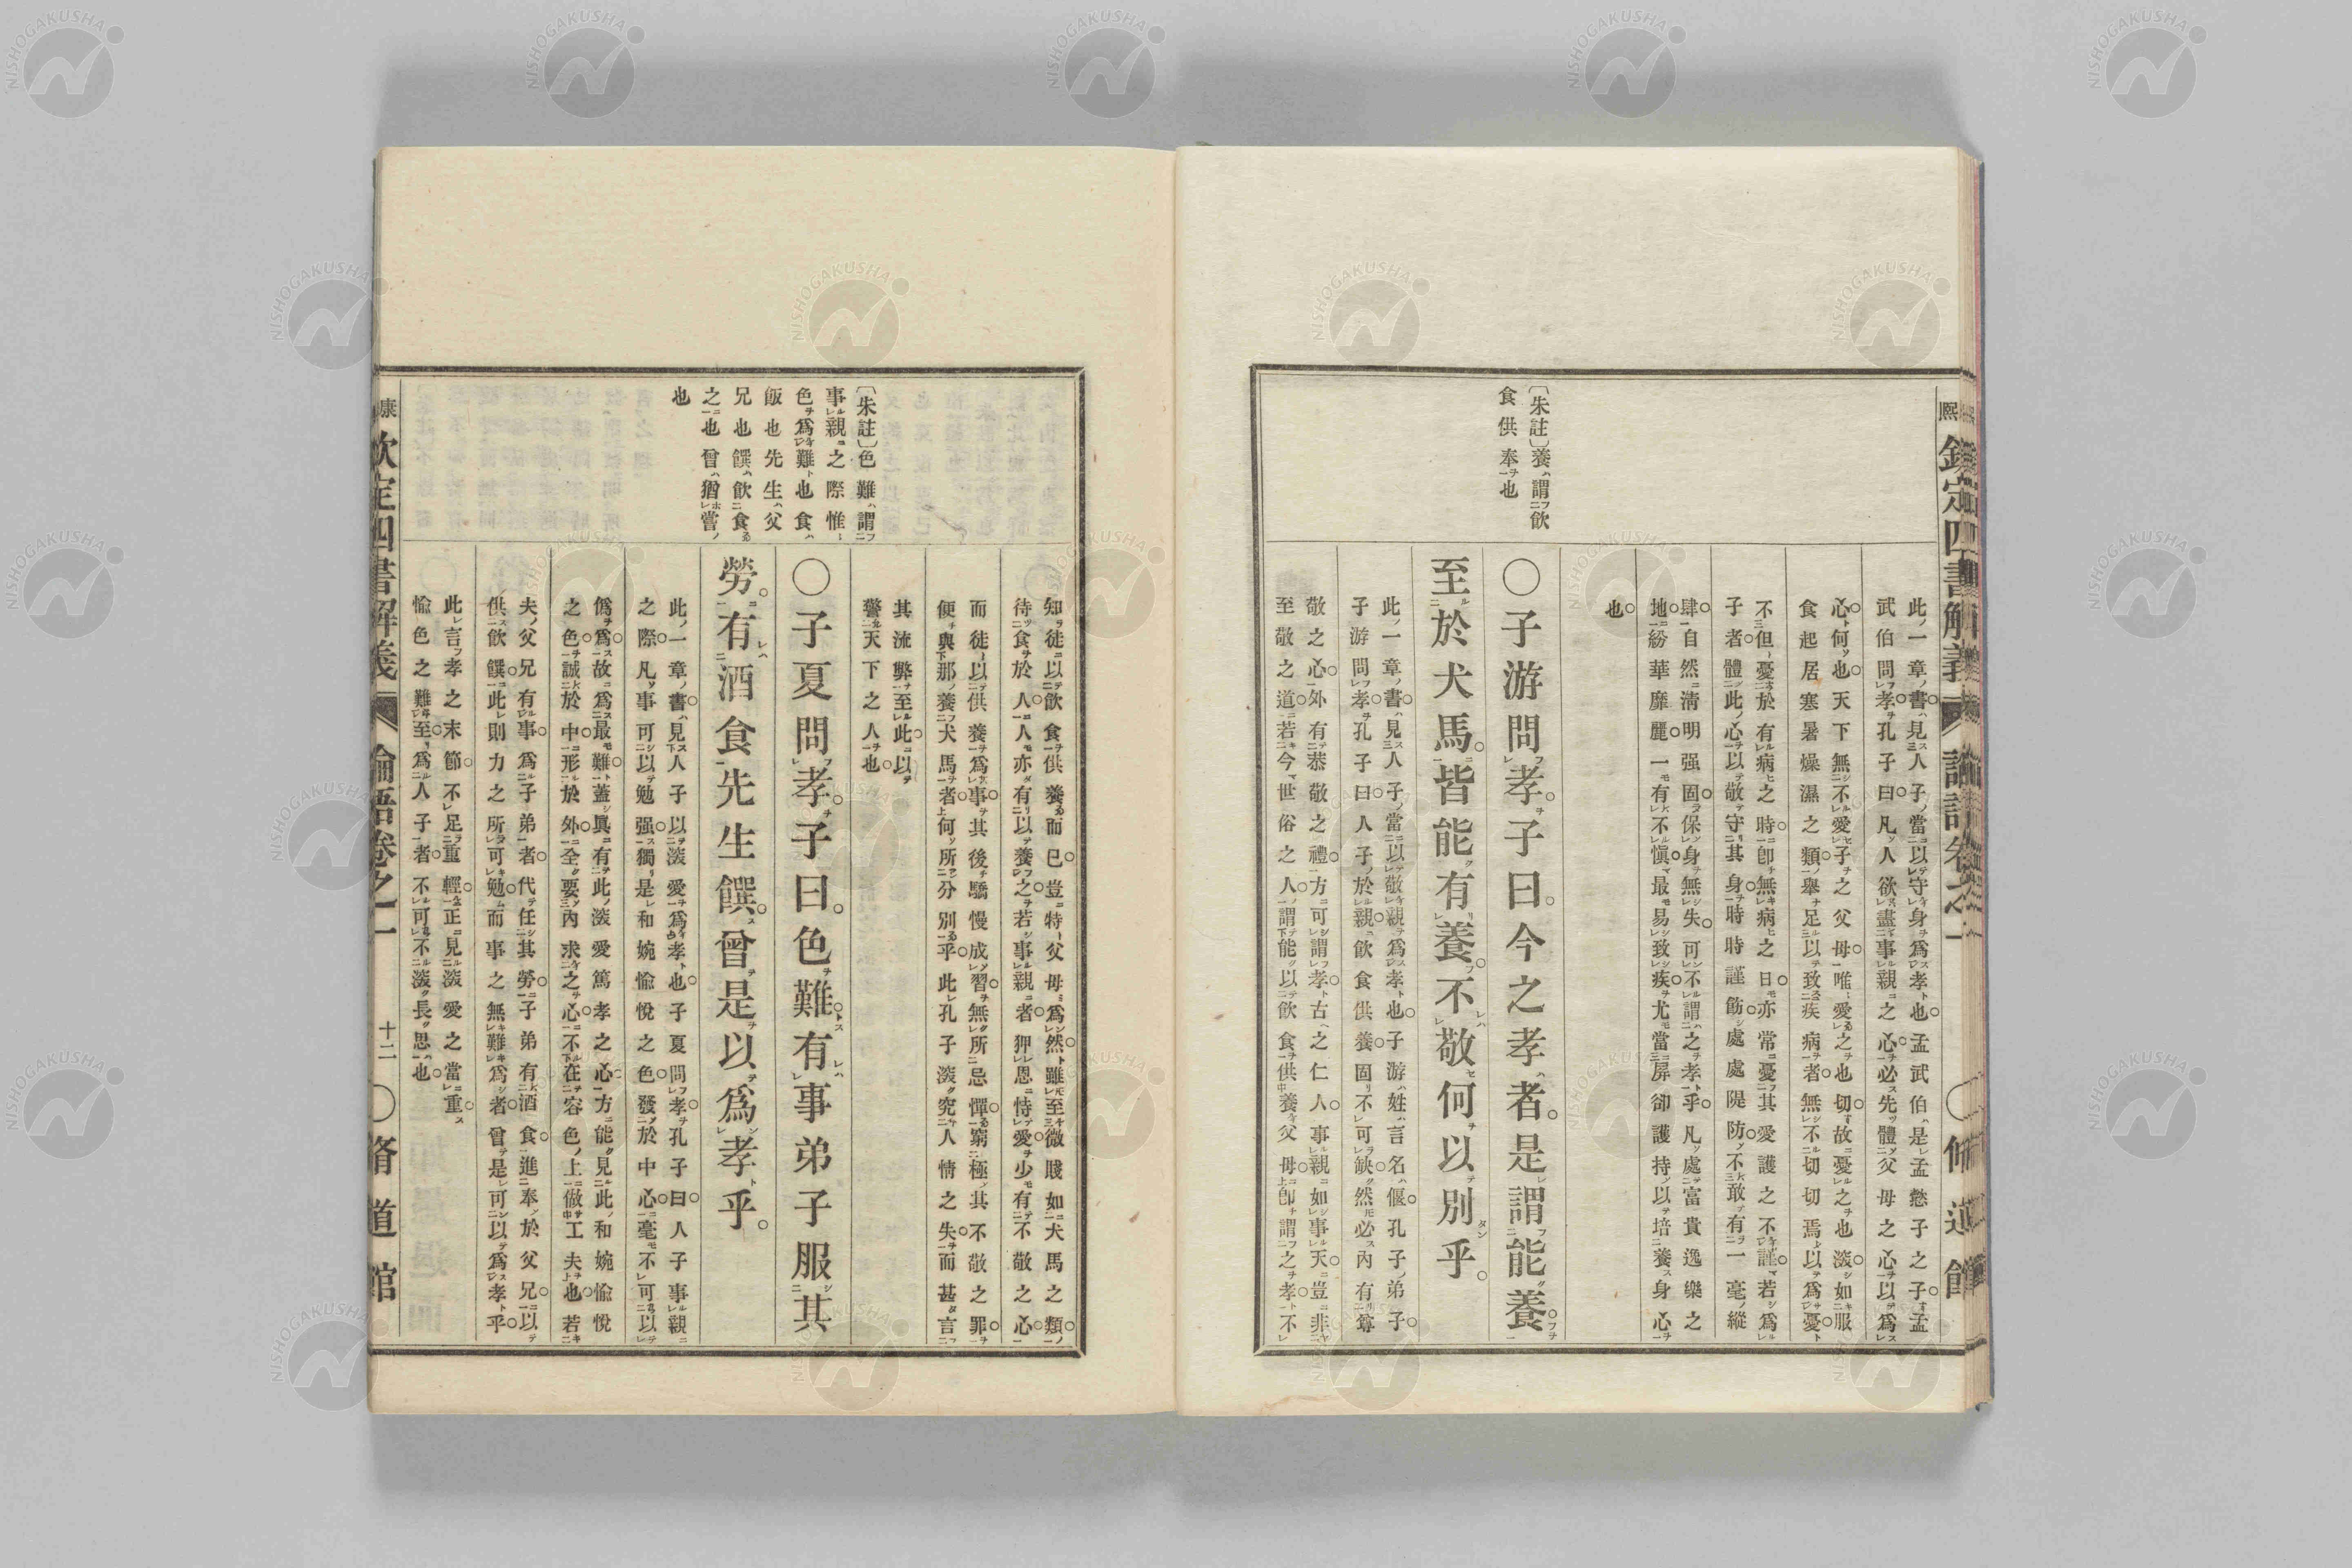 〔朱註〕養謂飲
食供奉也
此一章書見人子當以守身爲孝也孟武伯是孟懿子之子孟
武伯問孝孔子曰凡人欲盡事親之心必先體父母之心以爲
心何也天下無不愛子之父母唯愛之也切故憂之也深如服
食起居寒暑燥濕之類舉足以致疾病者無不切切焉以爲憂
不但憂於有病之時卽無病之日亦常憂其愛護之不謹若爲
子者體此心以敬守其身時時謹節處處隄防不敢有一毫縱
肆自然淸明强固保身無失可不謂之孝乎凡處富貴逸樂之
地紛華靡麗一有不愼最易致疾尤當屛卻護持以培養身心
也
〇子游問孝子曰今之孝者是謂能養
至於犬馬皆能有養不敬何以別乎
此一章書見人子當以敬親爲孝也子游姓言名偃孔子弟子
子游問孝孔子曰人子於親飲食供養固不可缺然必內有尊
敬之心外有恭敬之禮方可謂孝古之仁人事親如事天豈非
至敬之道若今世俗之人謂能以飲食供養父母卽謂之孝不
〔朱註〕色難謂
事親之際惟
色爲難也食
飯也先生父
兄也饌飲食
之也曾猶嘗
也
知徒以飲食供養而已豈特父母爲然雖至微賤如犬馬之類
待食於人人亦有以養之若事親者狎恩恃愛少有不敬之心
而徒以供養爲事其後驕慢成習無所忌憚窮極其不敬之罪
便與那養犬馬者何所分別乎此孔子深究人情之失而甚言
其流弊至此以
警天下之人也
〇子夏問孝子曰色難有事弟子服其
勞有酒食先生饌曾是以爲孝乎
此一章書見人子以深愛爲孝也子夏問孝孔子曰人子事親
之際凡事可以勉强獨是和婉愉悅之色發於中心毫不可以
僞爲故爲最難蓋眞有此深愛篤孝之心方能見此和婉愉悅
之色誠於中形於外全要內求之心不在容色上做工夫也若
夫父兄有事爲子弟者代任其勞子弟有酒食進奉於父兄以
供飲饌此則力之所可勉而事之無難爲者曾是可以爲孝乎
此言孝之末節不足重輕正見深愛之當重
愉色之難至爲人子者不可不深長思也
欽定四書解義 論語卷之一 十二 〇脩道館